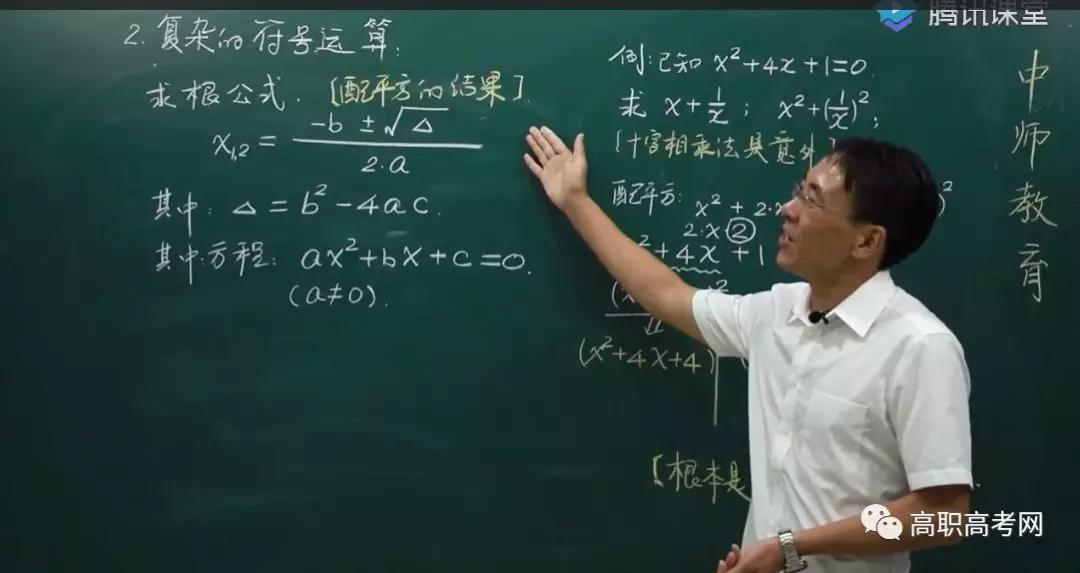 腾讯课堂
2. 复杂的符号运算:
求根公式. [配平方的结果].
x₁,₂ = (-b ± √Δ) / (2·a)
其中: Δ = b² - 4ac.
其中方程: ax² + bx + c = 0.
(a ≠ 0).
例: 已知 x² + 4x + 1 = 0.
求 x + 1/x ; x² + (1/x)² ;
[十字相乘法是意外]
配平方: x² + 2·x )²
2·x ②
² + 4x + 1
(x ²
(x² + 4x + 4)
[根本是
中师教育
高职高考网